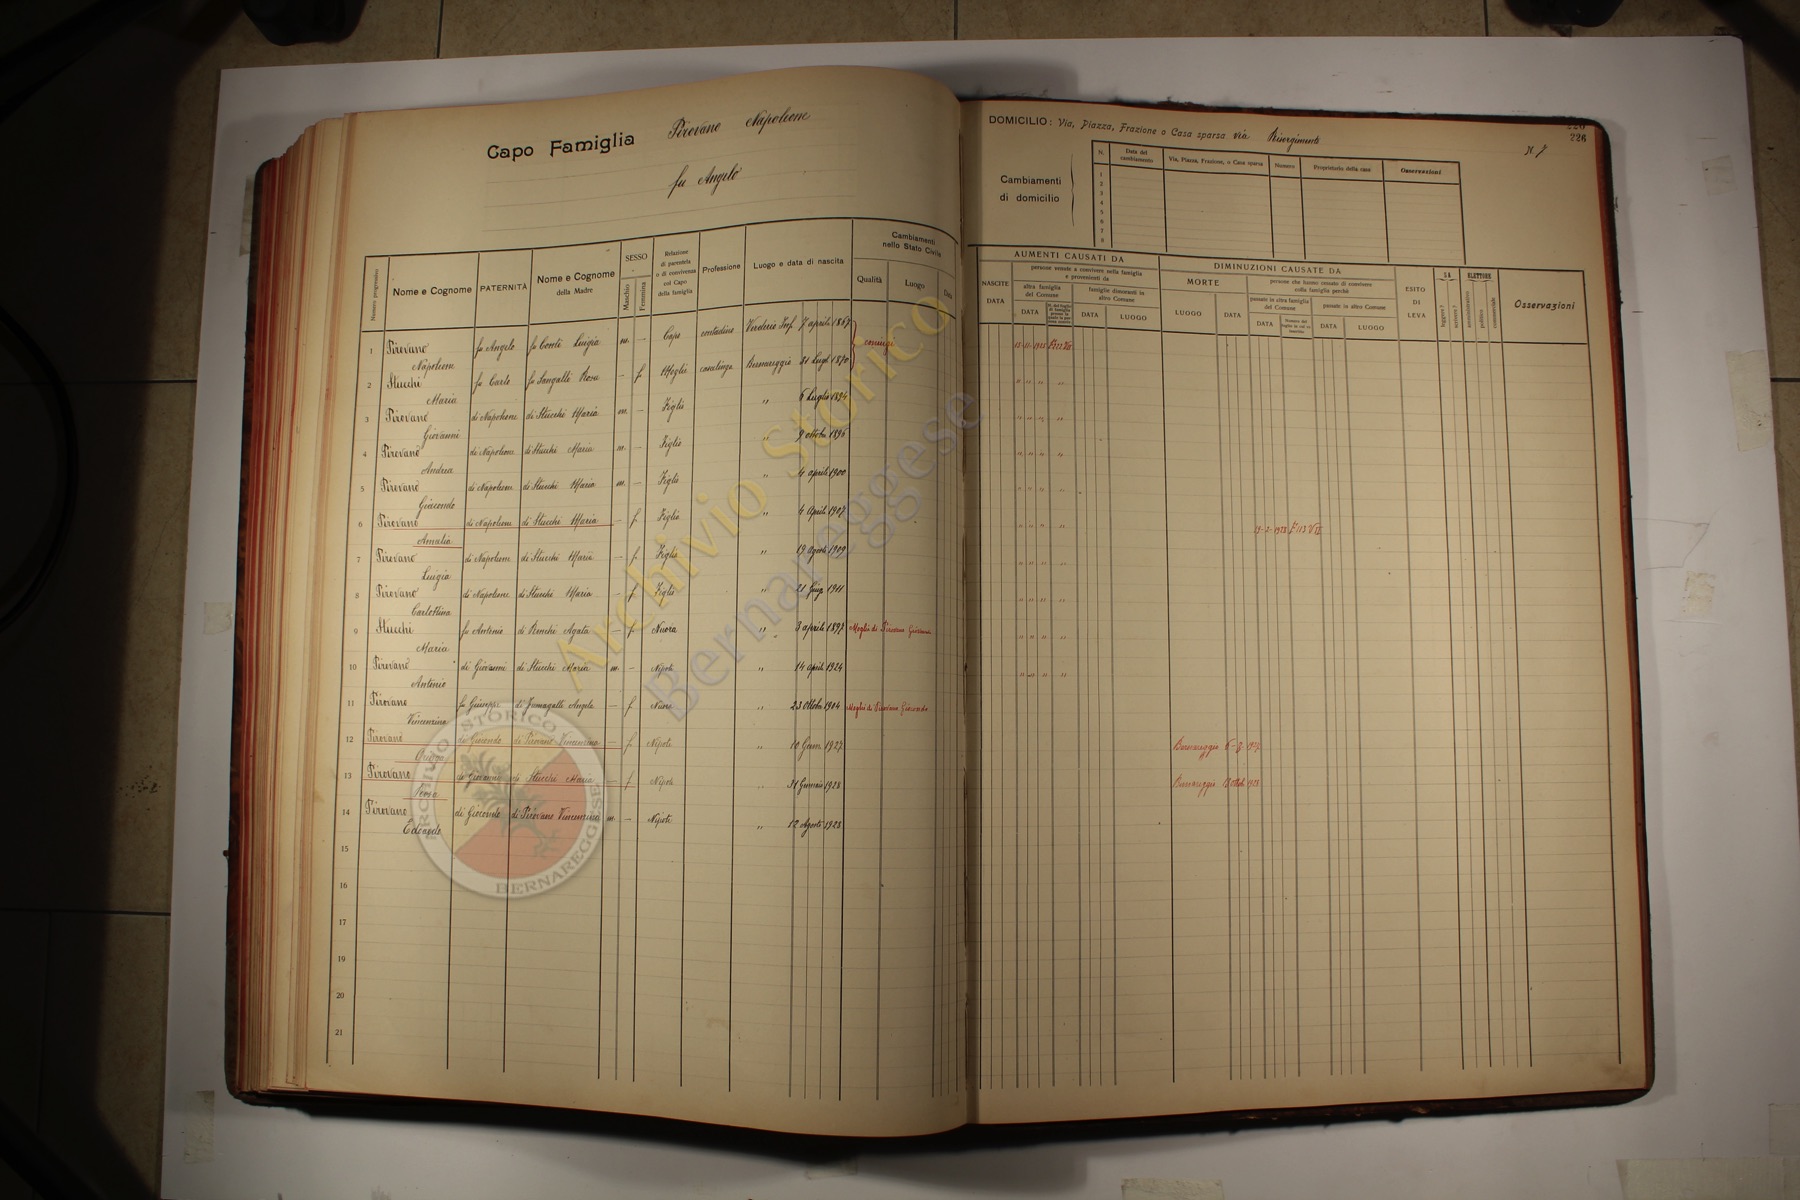 Capo Famiglia Pirovano Napoleone
fu Angelo
DOMICILIO: Via, Piazza, Frazione o Casa sparsa via Risorgimento N. 7
226
Cambiamenti di domicilio
N. Data del cambiamento Via, Piazza, Frazione, o Casa sparsa Numero Proprietario della casa Osservazioni
1
2
3
4
5
6
7
8
Numero progressivo Nome e Cognome PATERNITÀ Nome e Cognome della Madre SESSO Maschio Femmina Relazione di parentela o di convivenza col Capo della famiglia Professione Luogo e data di nascita Cambiamenti nello Stato Civile Qualità Luogo Data
NASCITE DATA AUMENTI CAUSATI DA persone venute a convivere nella famiglia e provenienti da altra famiglia del Comune DATA famiglie dimoranti in altro Comune DATA LUOGO
DIMINUZIONI CAUSATE DA MORTE LUOGO DATA persone che hanno cessato di convivere colla famiglia perchè passate in altra famiglia del Comune DATA passate in altro Comune DATA LUOGO
ESITO DI LEVA SA leggere? scrivere? ELETTORE amministrativo politico commerciale Osservazioni
1 Pirovano Napoleone fu Angelo fu Conti Luigia m. — Capo contadino Verderio Inf. 7 aprile 1867 coniugi
2 Stucchi Maria fu Carlo fu Sangalli Rosa — f. Moglie casalinga Bernareggio 31 Lugl 1870
3 Pirovano Giovanni di Napoleone di Stucchi Maria m. — Figlio " 6 Luglio 1894
4 Pirovano Andrea di Napoleone di Stucchi Maria m. — Figlio " 9 ottobre 1896
5 Pirovano Giocondo di Napoleone di Stucchi Maria m. — Figlio " 4 aprile 1900
6 Pirovano Amalia di Napoleone di Stucchi Maria — f. Figlia " 4 Aprile 1907 19-2-1928
7 Pirovano Luigia di Napoleone di Stucchi Maria — f. Figlia " 19 Agosto 1909
8 Pirovano Carlottina di Napoleone di Stucchi Maria — f. Figlia " 21 Giug 1911
9 Stucchi Maria fu Antonio di Ronchi Agata — f. Nuora " 3 aprile 1897 Moglie di Pirovano Giovanni
10 Pirovano Antonio di Giovanni di Stucchi Maria m. — Nipote " 14 aprile 1924
11 Pirovano Vincenzina fu Giuseppe di Fumagalli Angela — f. Nuora " 23 Ottobre 1904 Moglie di Pirovano Giocondo
12 Pirovano di Giocondo di Pirovano Vincenzina — f. Nipote " 10 Genn. 1927 Bernareggio
13 Pirovano di Giovanni di Stucchi Maria — f. Nipote " 31 Gennaio 1928 Bernareggio
14 Pirovano Edoardo di Giocondo di Pirovano Vincenzina m. — Nipote " 12 Agosto 1928
15
16
17
18
19
20
21
Archivio Storico
Bernareggese
ARCHIVIO STORICO
BERNAREGGESE